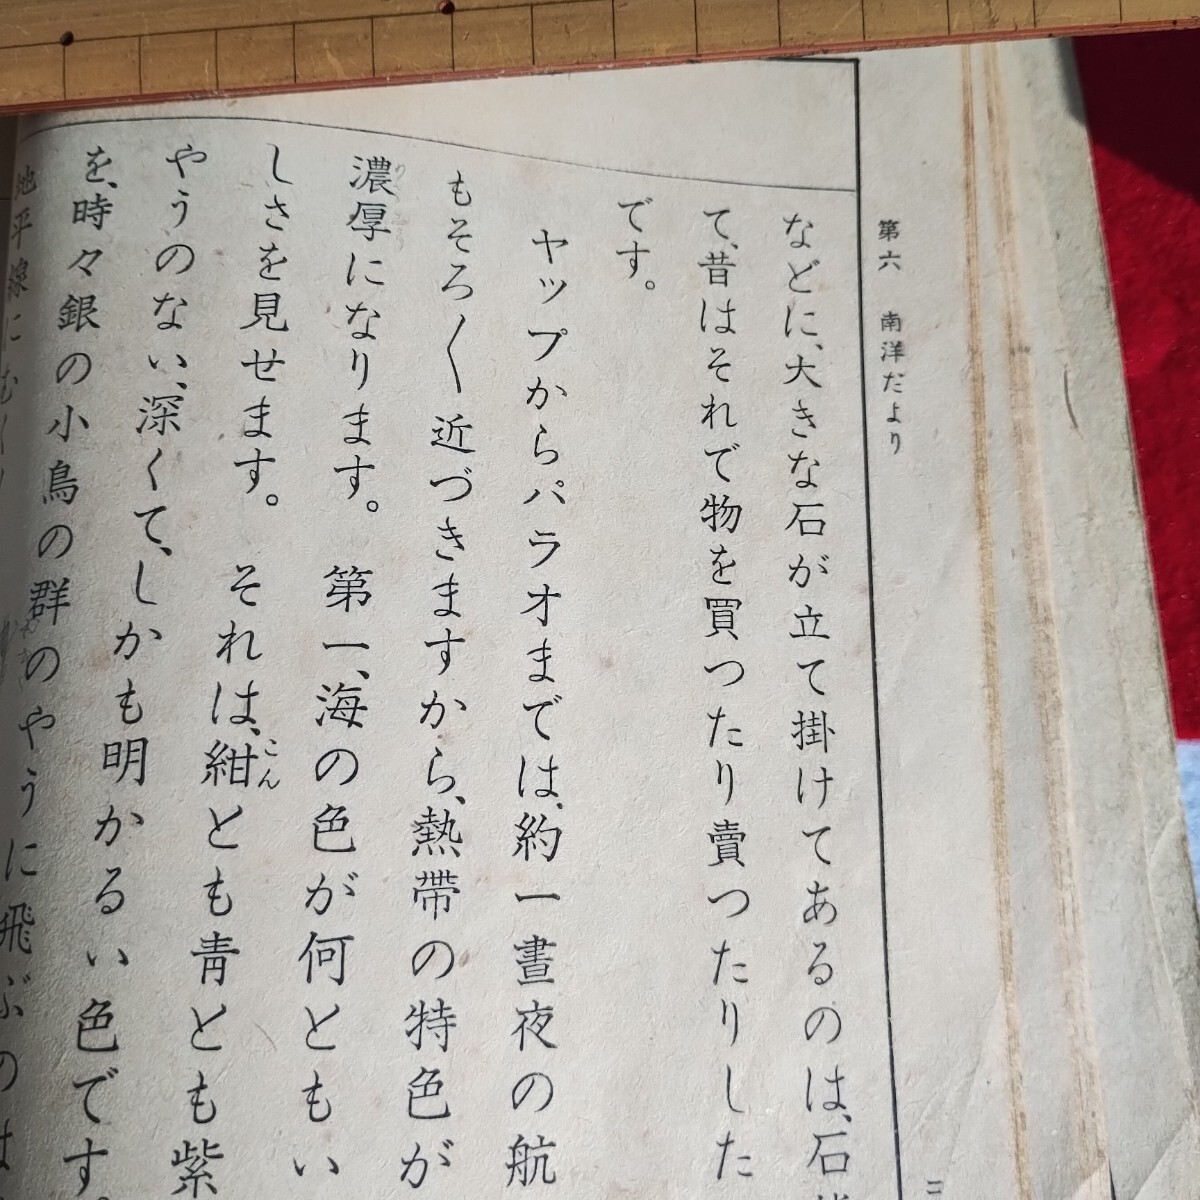 第六 南洋だより
などに、大きな石が立て掛けてあるのは、石
て、昔はそれで物を買つたり賣つたりした
です。
ヤップからパラオまでは、約一晝夜の航
もそろ〳〵近づきますから、熱帶の特色が
濃厚になります。第一、海の色が何ともい
しさを見せます。それは、紺とも青とも紫
こん
やうのない、深くて、しかも明かるい色です。
を、時々銀の小鳥の群のやうに飛ぶのは
地平線に
二